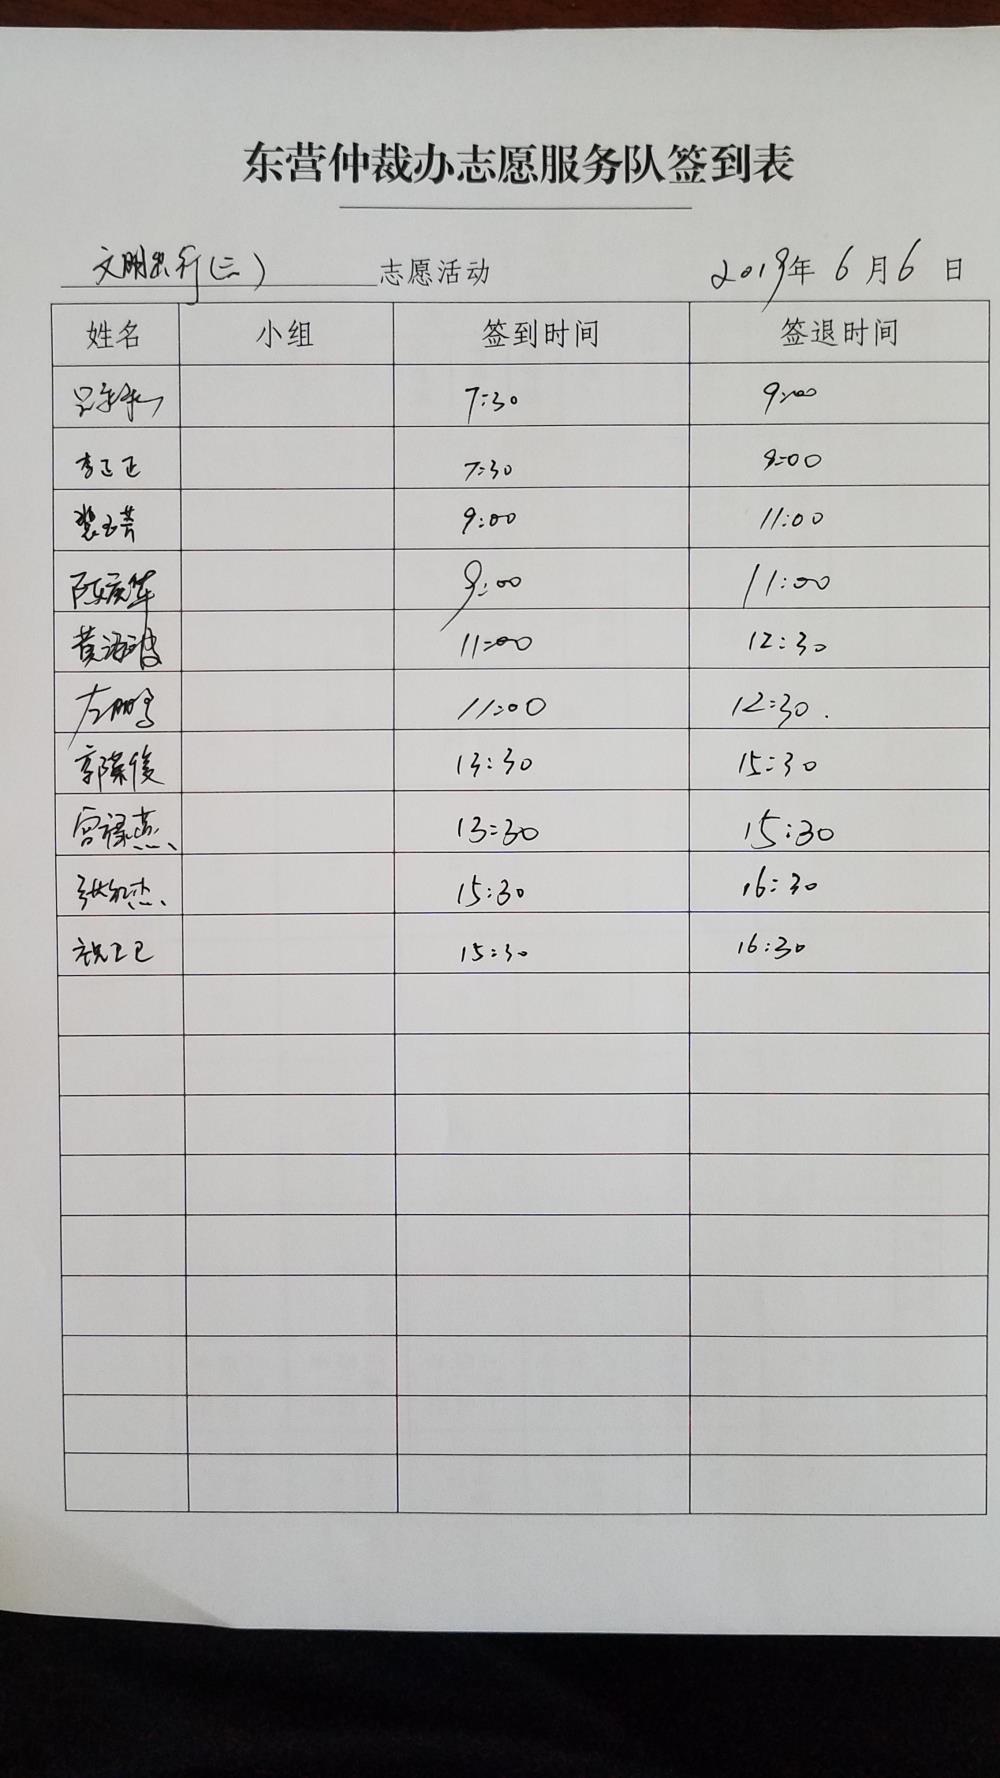 东营仲裁办志愿服务队签到表
文明出行(三) 志愿活动 2019年 6月6日
姓名 小组 签到时间 签退时间
7:30 9:00
李正正 7:30 9:00
裴玉芳 9:00 11:00
陈庆华 9:00 11:00
黄海波 11:00 12:30
左鹏 11:00 12:30.
郭荣俊 13:30 15:30
宫禄燕 13:30 15:30
张杰 15:30 16:30
祝卫卫 15:30 16:30